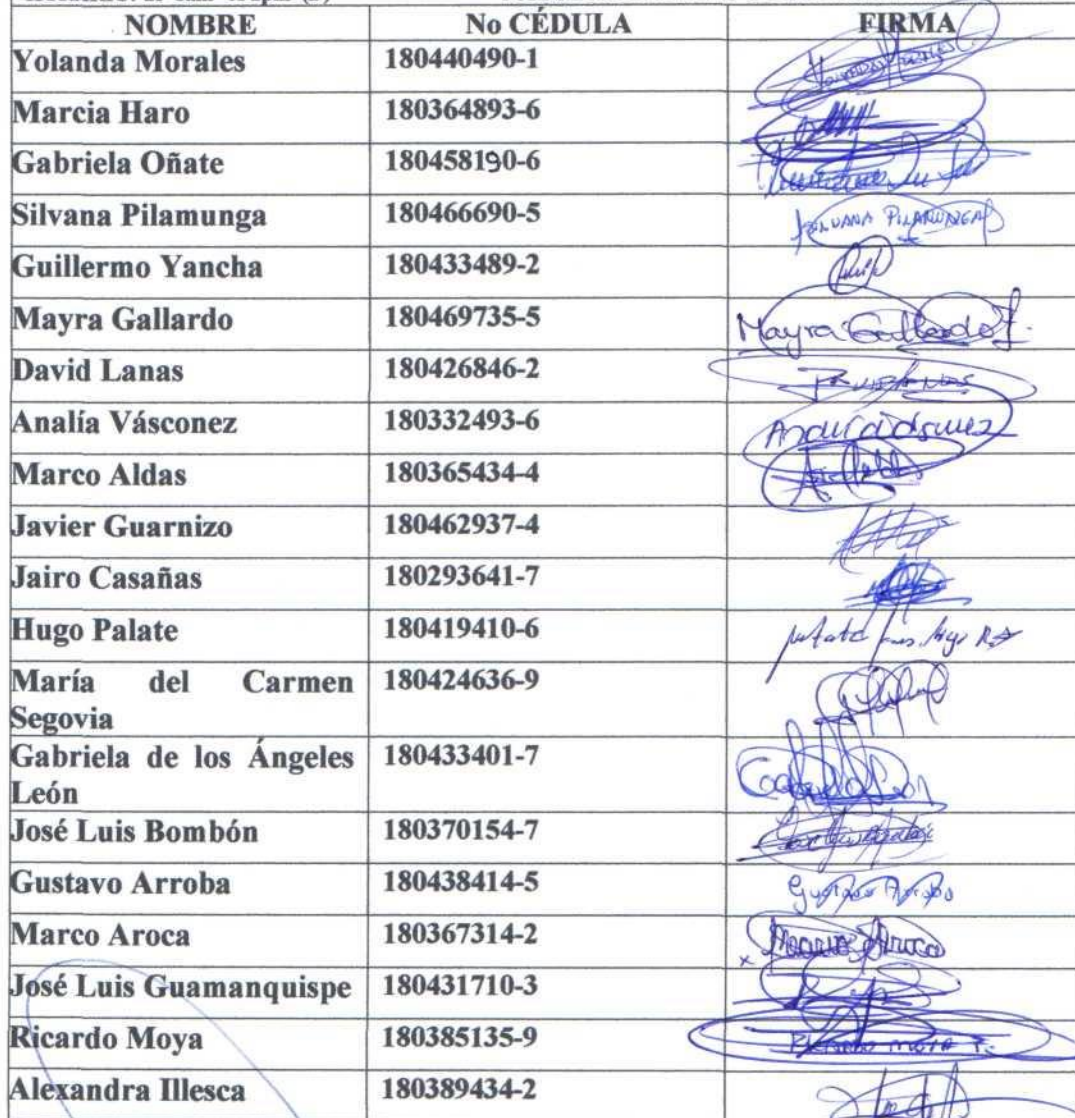 NOMBRE No CÉDULA FIRMA
Yolanda Morales 180440490-1
Marcia Haro 180364893-6
Gabriela Oñate 180458190-6
Silvana Pilamunga 180466690-5 SILVANA PILAMUNGA
Guillermo Yancha 180433489-2
Mayra Gallardo 180469735-5 Mayra Gallardo
David Lanas 180426846-2
Analía Vásconez 180332493-6
Marco Aldas 180365434-4
Javier Guarnizo 180462937-4
Jairo Casañas 180293641-7
Hugo Palate 180419410-6
María del Carmen 180424636-9
Segovia
Gabriela de los Ángeles 180433401-7
León
José Luis Bombón 180370154-7
Gustavo Arroba 180438414-5 Gustavo Arroba
Marco Aroca 180367314-2 Marco Aroca
José Luis Guamanquispe 180431710-3
Ricardo Moya 180385135-9
Alexandra Illesca 180389434-2